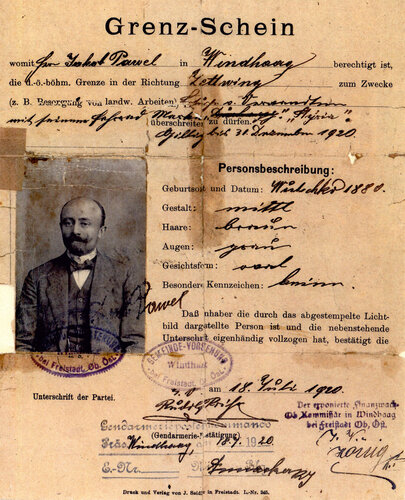 Grenz-Schein
womit Hr Jakob Pawel in Windhaag berechtigt ist,
die d.-ö.-böhm. Grenze in der Richtung Zettwing zum Zwecke
(z. B. Besorgung von landw. Arbeiten)
mit seinem Fahrrad Marke "Styria"
überschreiten zu dürfen.
Giltig bis 31 Dezember 1920.
Personsbeschreibung:
Geburtsort und Datum: 1880.
Gestalt: mittl
Haare: braun
Augen: grau
Gesichtsform: oval
Besonder Kennzeichen: keine
Pawel
Daß inhaber die durch das abgestempelte Licht-
bild dargstellte Person ist und die nebenstehende
Unterschrift eigenhändig vollzogen hat, bestätigt die
bei Freistadt, Ob. Öst.
GEMEINDE-VORSTEHUNG
Windhaag
bei Freistadt, Ob. Öst.
am 18. Juli 1920.
Unterschrift der Partei.
Der exponierte Finanzwach-
Ob. Kommissär in Windhaag
bei Freistadt Ob. Öst.
Gendarmeriepostenkommando
(Gendarmerie-Bestätigung)
Windhaag 18/7 1920
E.-Nr.
Druck und Verlag von J. Seidl in Freistadt. L.-Nr. 345.